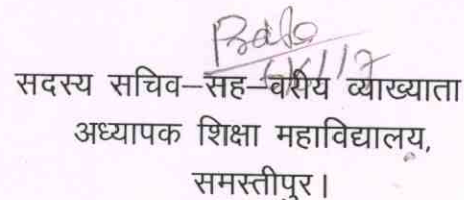 सदस्य सचिव–सह–वरीय व्याख्याता
अध्यापक शिक्षा महाविद्यालय,
समस्तीपुर।